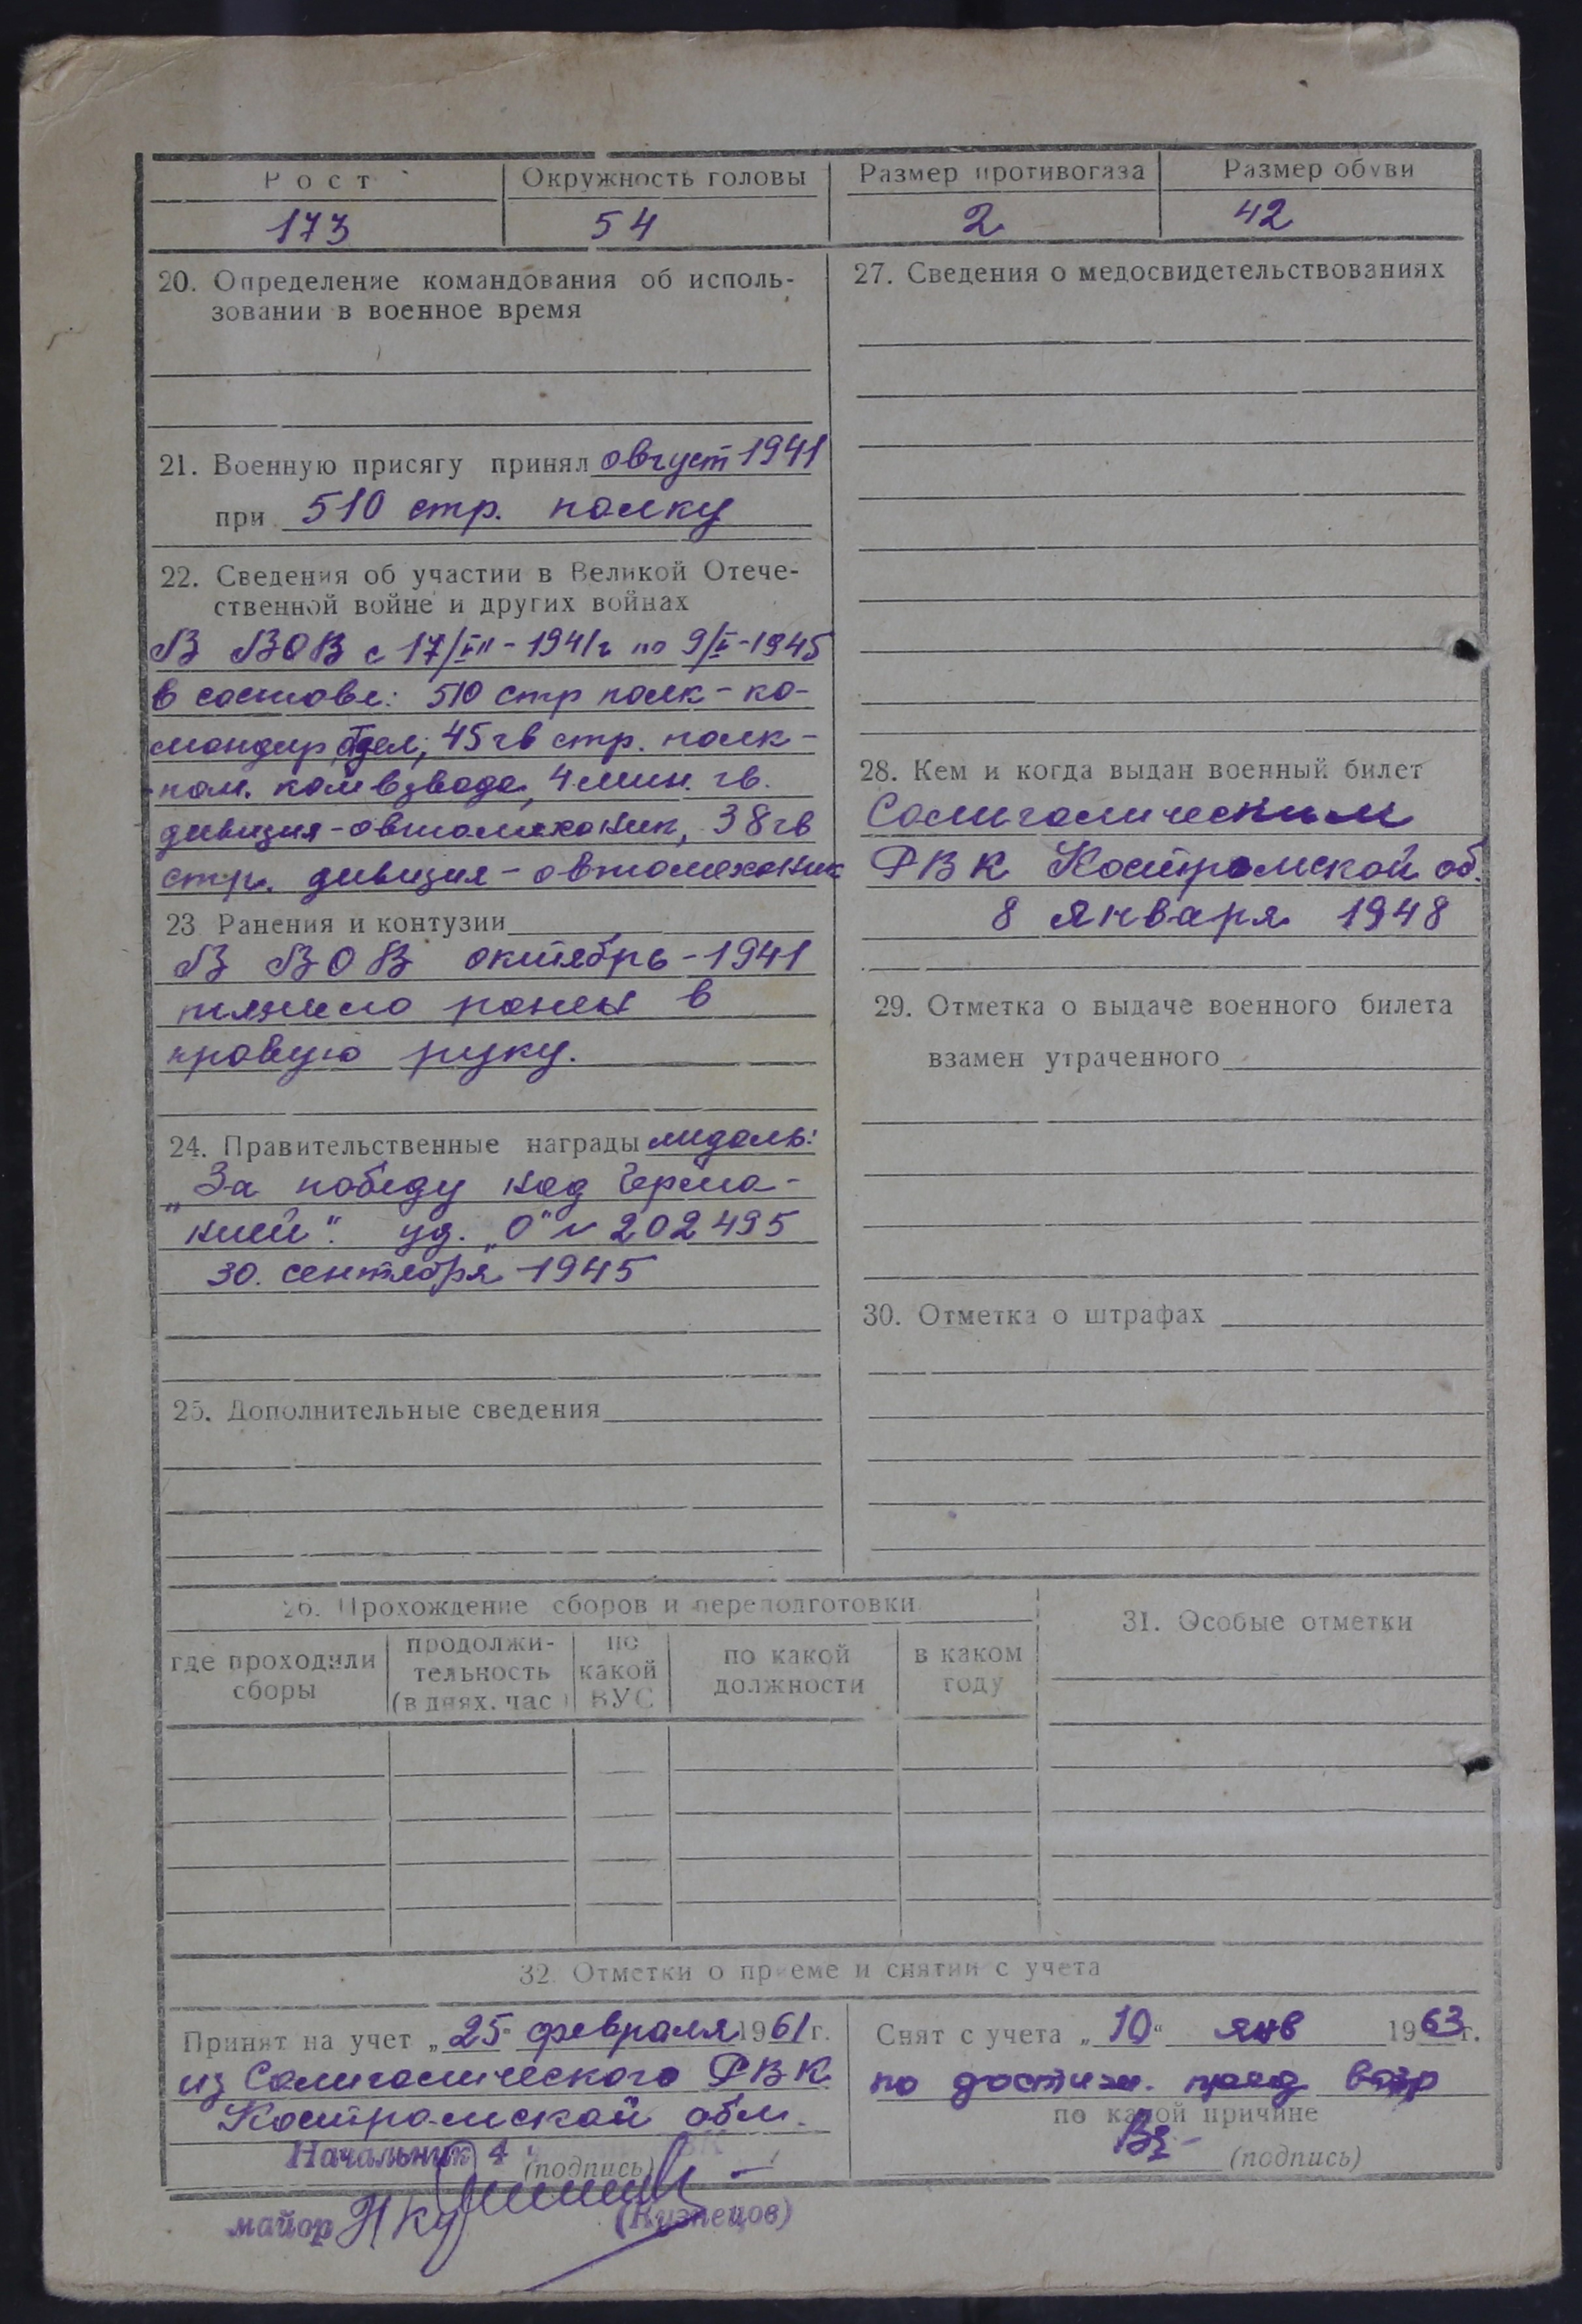 Рост Окружность головы Размер противогаза Размер обуви
173 54 2 42
20. Определение командования об исполь-
зовании в военное время
21. Военную присягу принял август 1941
при 510 стр. полку
22. Сведения об участии в Великой Отече-
ственной войне и других войнах
В ВОВ с 17/VII-1941г по 9/V-1945
в составе: 510 стр полк - ко-
мандир отдел; 45 гв стр. полк -
пом. ком взвода, 4 мин. гв.
дивизия - автомеханик, 38 гв
стр. дивизия - автомеханик
23 Ранения и контузии
В ВОВ октябрь - 1941
тяжело ранен в
правую руку.
24. Правительственные награды медаль:
„За победу над Герма-
нией". уд. „О" № 202495
30. сентября 1945
25. Дополнительные сведения
27. Сведения о медосвидетельствованиях
28. Кем и когда выдан военный билет
Солигаличесним
РВК Костромской об.
8 января 1948
29. Отметка о выдаче военного билета
взамен утраченного
30. Отметка о штрафах
26. Прохождение сборов и переподготовки
где проходили
сборы
продолжи-
тельность
(в днях. час)
по
какой
ВУС
по какой
должности
в каком
году
31. Особые отметки
32. Отметки о приеме и снятии с учета
Принят на учет „25" февраля 1961г.
из Солигалического РВК
Костромской обл.
Начальник 4
(подпись)
майор (Кузнецов)
Снят с учета „10" янв 1963г.
по достиж. пред возр
по какой причине
(подпись)